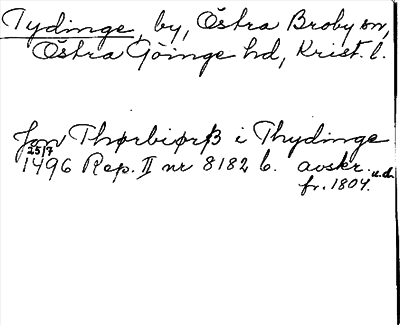 Tydinge, by, Östra Broby sn,
Östra Göinge hd, Krist. l.
Jon Thørbiørß i Thydinge
25/7
1496 Rep. II nr 8182 b. avskr. u.d.
fr. 1804.